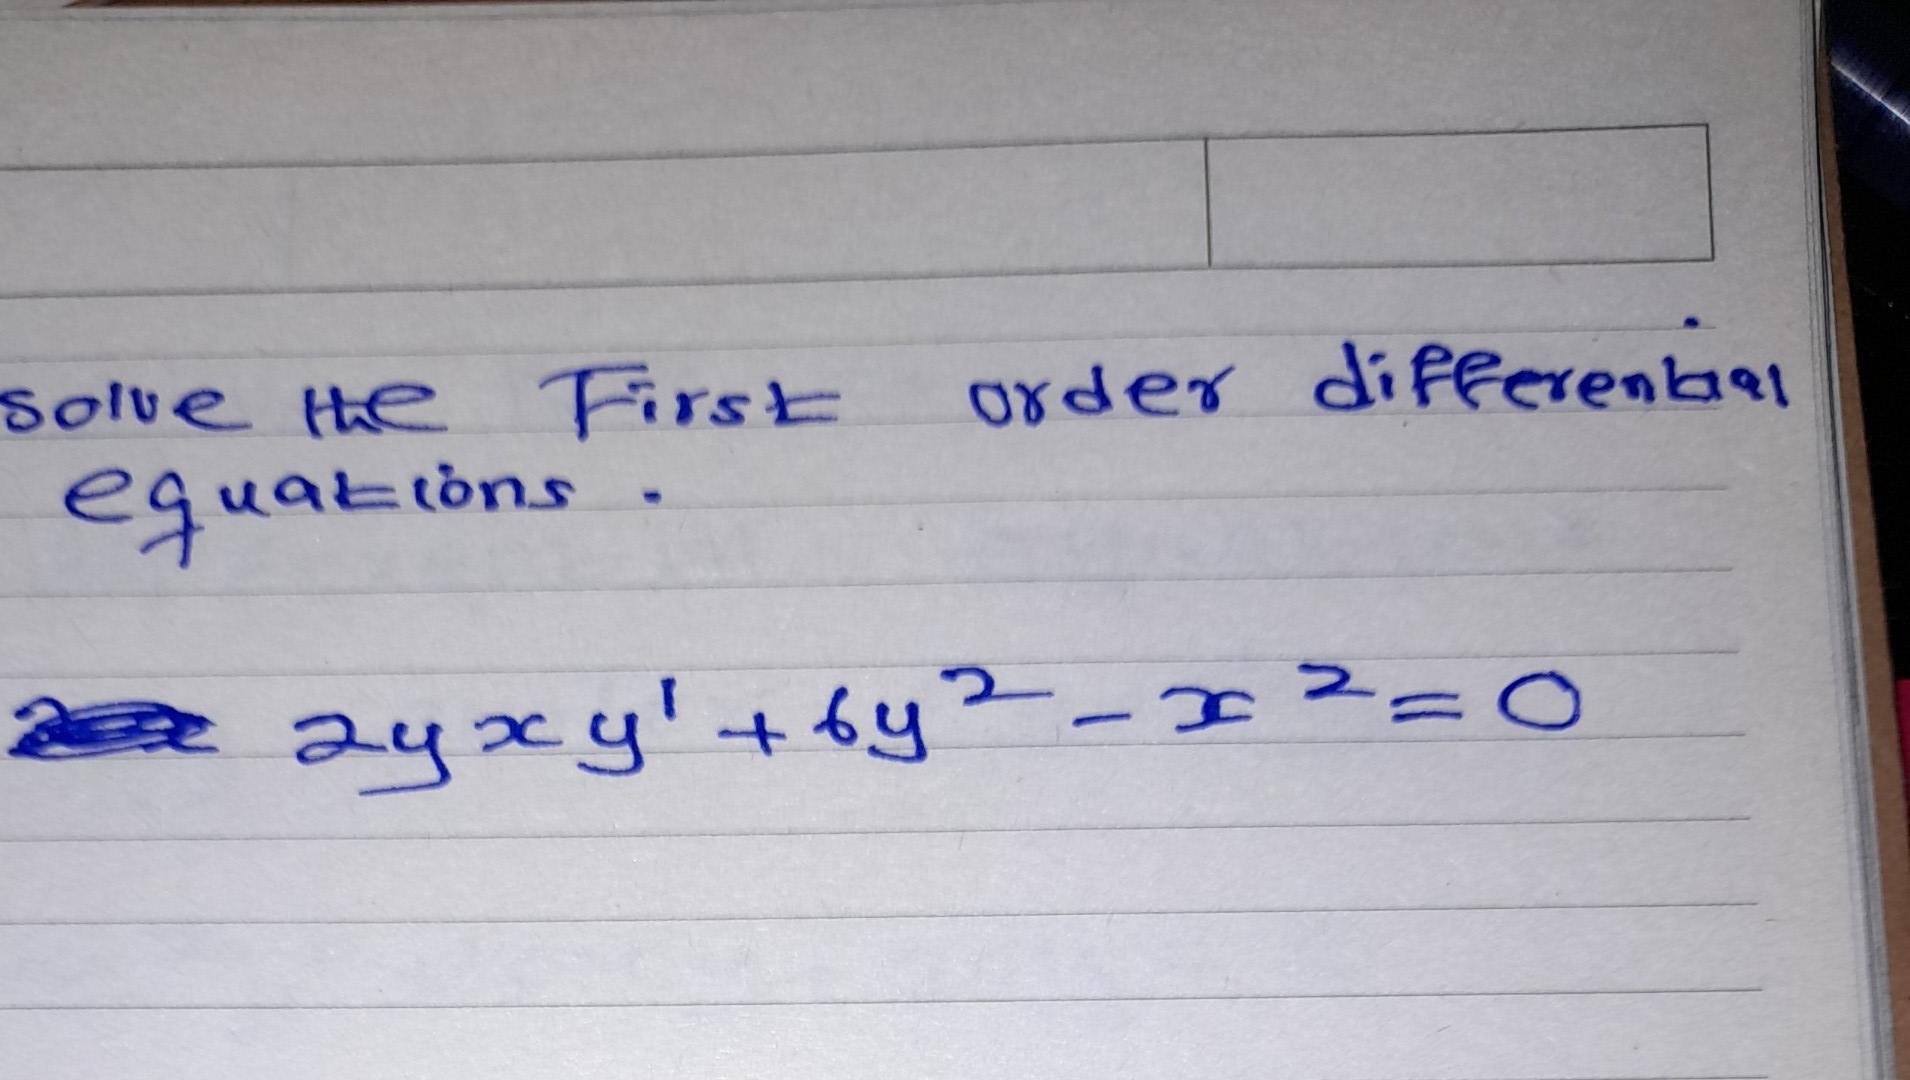 solve the First order differential
equations.
2yxy' + 6y² - x² = 0